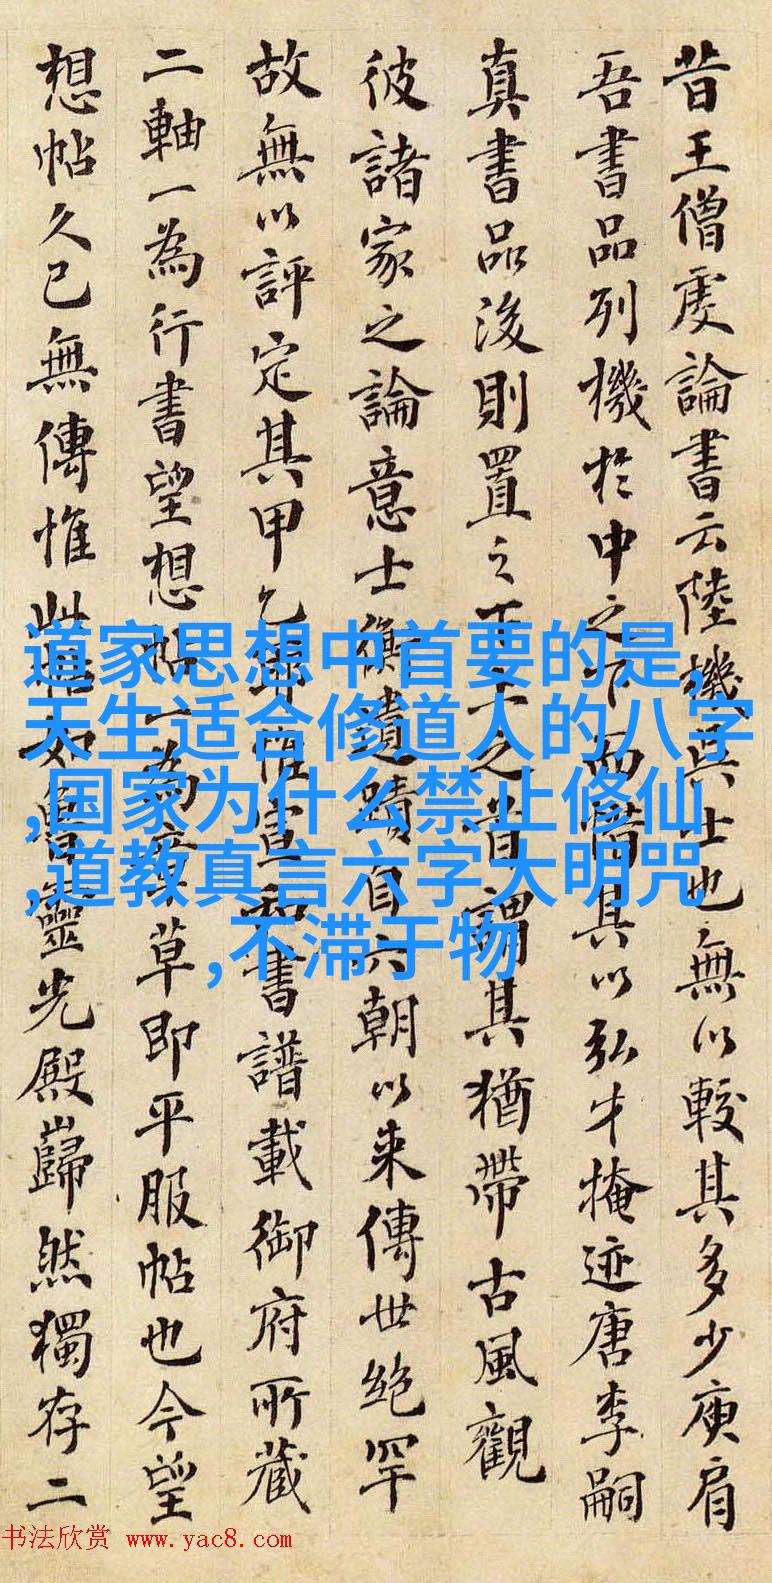 昔王僧虔論書云陸機吳士也無以較其多少庾肩
吾書品列機於中之下而惜其以弘才掩迹唐李嗣
真書品後則置之下上之謂其猶帶古風觀
彼諸家之論意士衡遺蹟自六朝以來傳世絶罕
故無以評定其甲乙耶惟宣和書譜載御府所藏
二軸一為行書望想帖一為章草即平服帖也今望
想帖久已無傳惟此帖如魯靈光殿巋然獨存二
道家思想中首要的是,
天生适合修道人的八字
,国家为什么禁止修仙
,道教真言六字大明咒
,不滞于物
书法欣赏 www.yac8.com